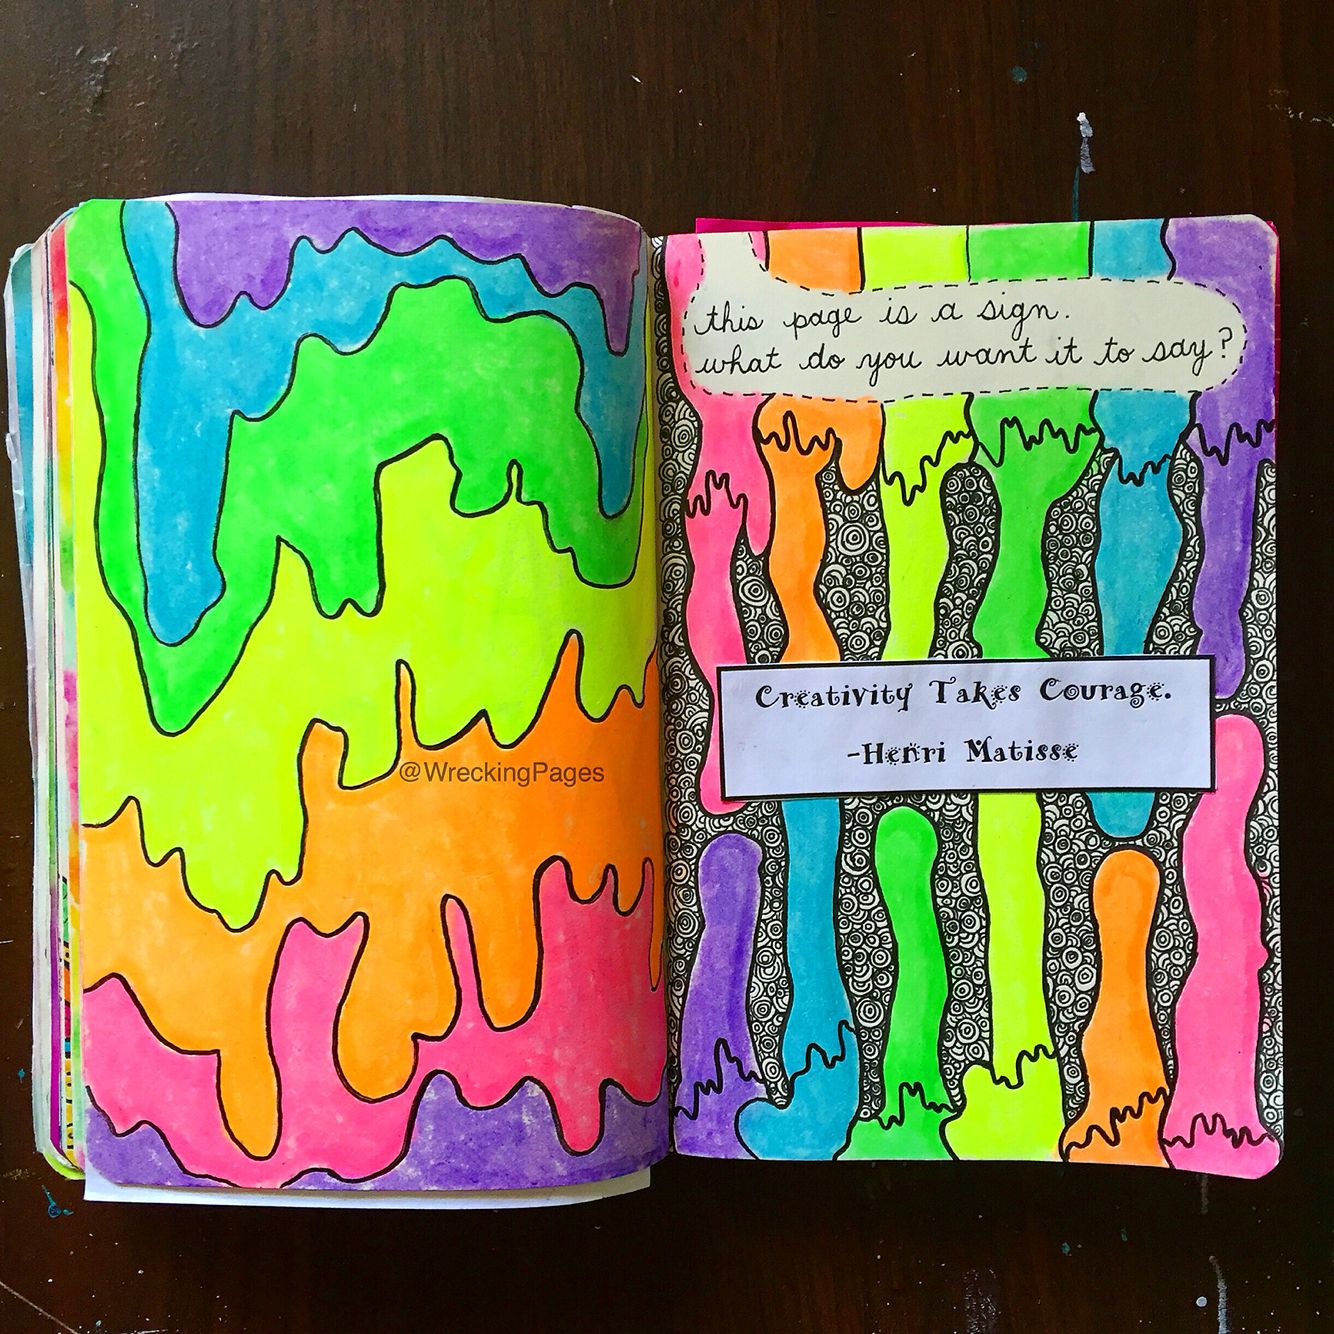 this page is a sign.
what do you want it to say?
Creativity Takes Courage.
-Henri Matisse
@WreckingPages